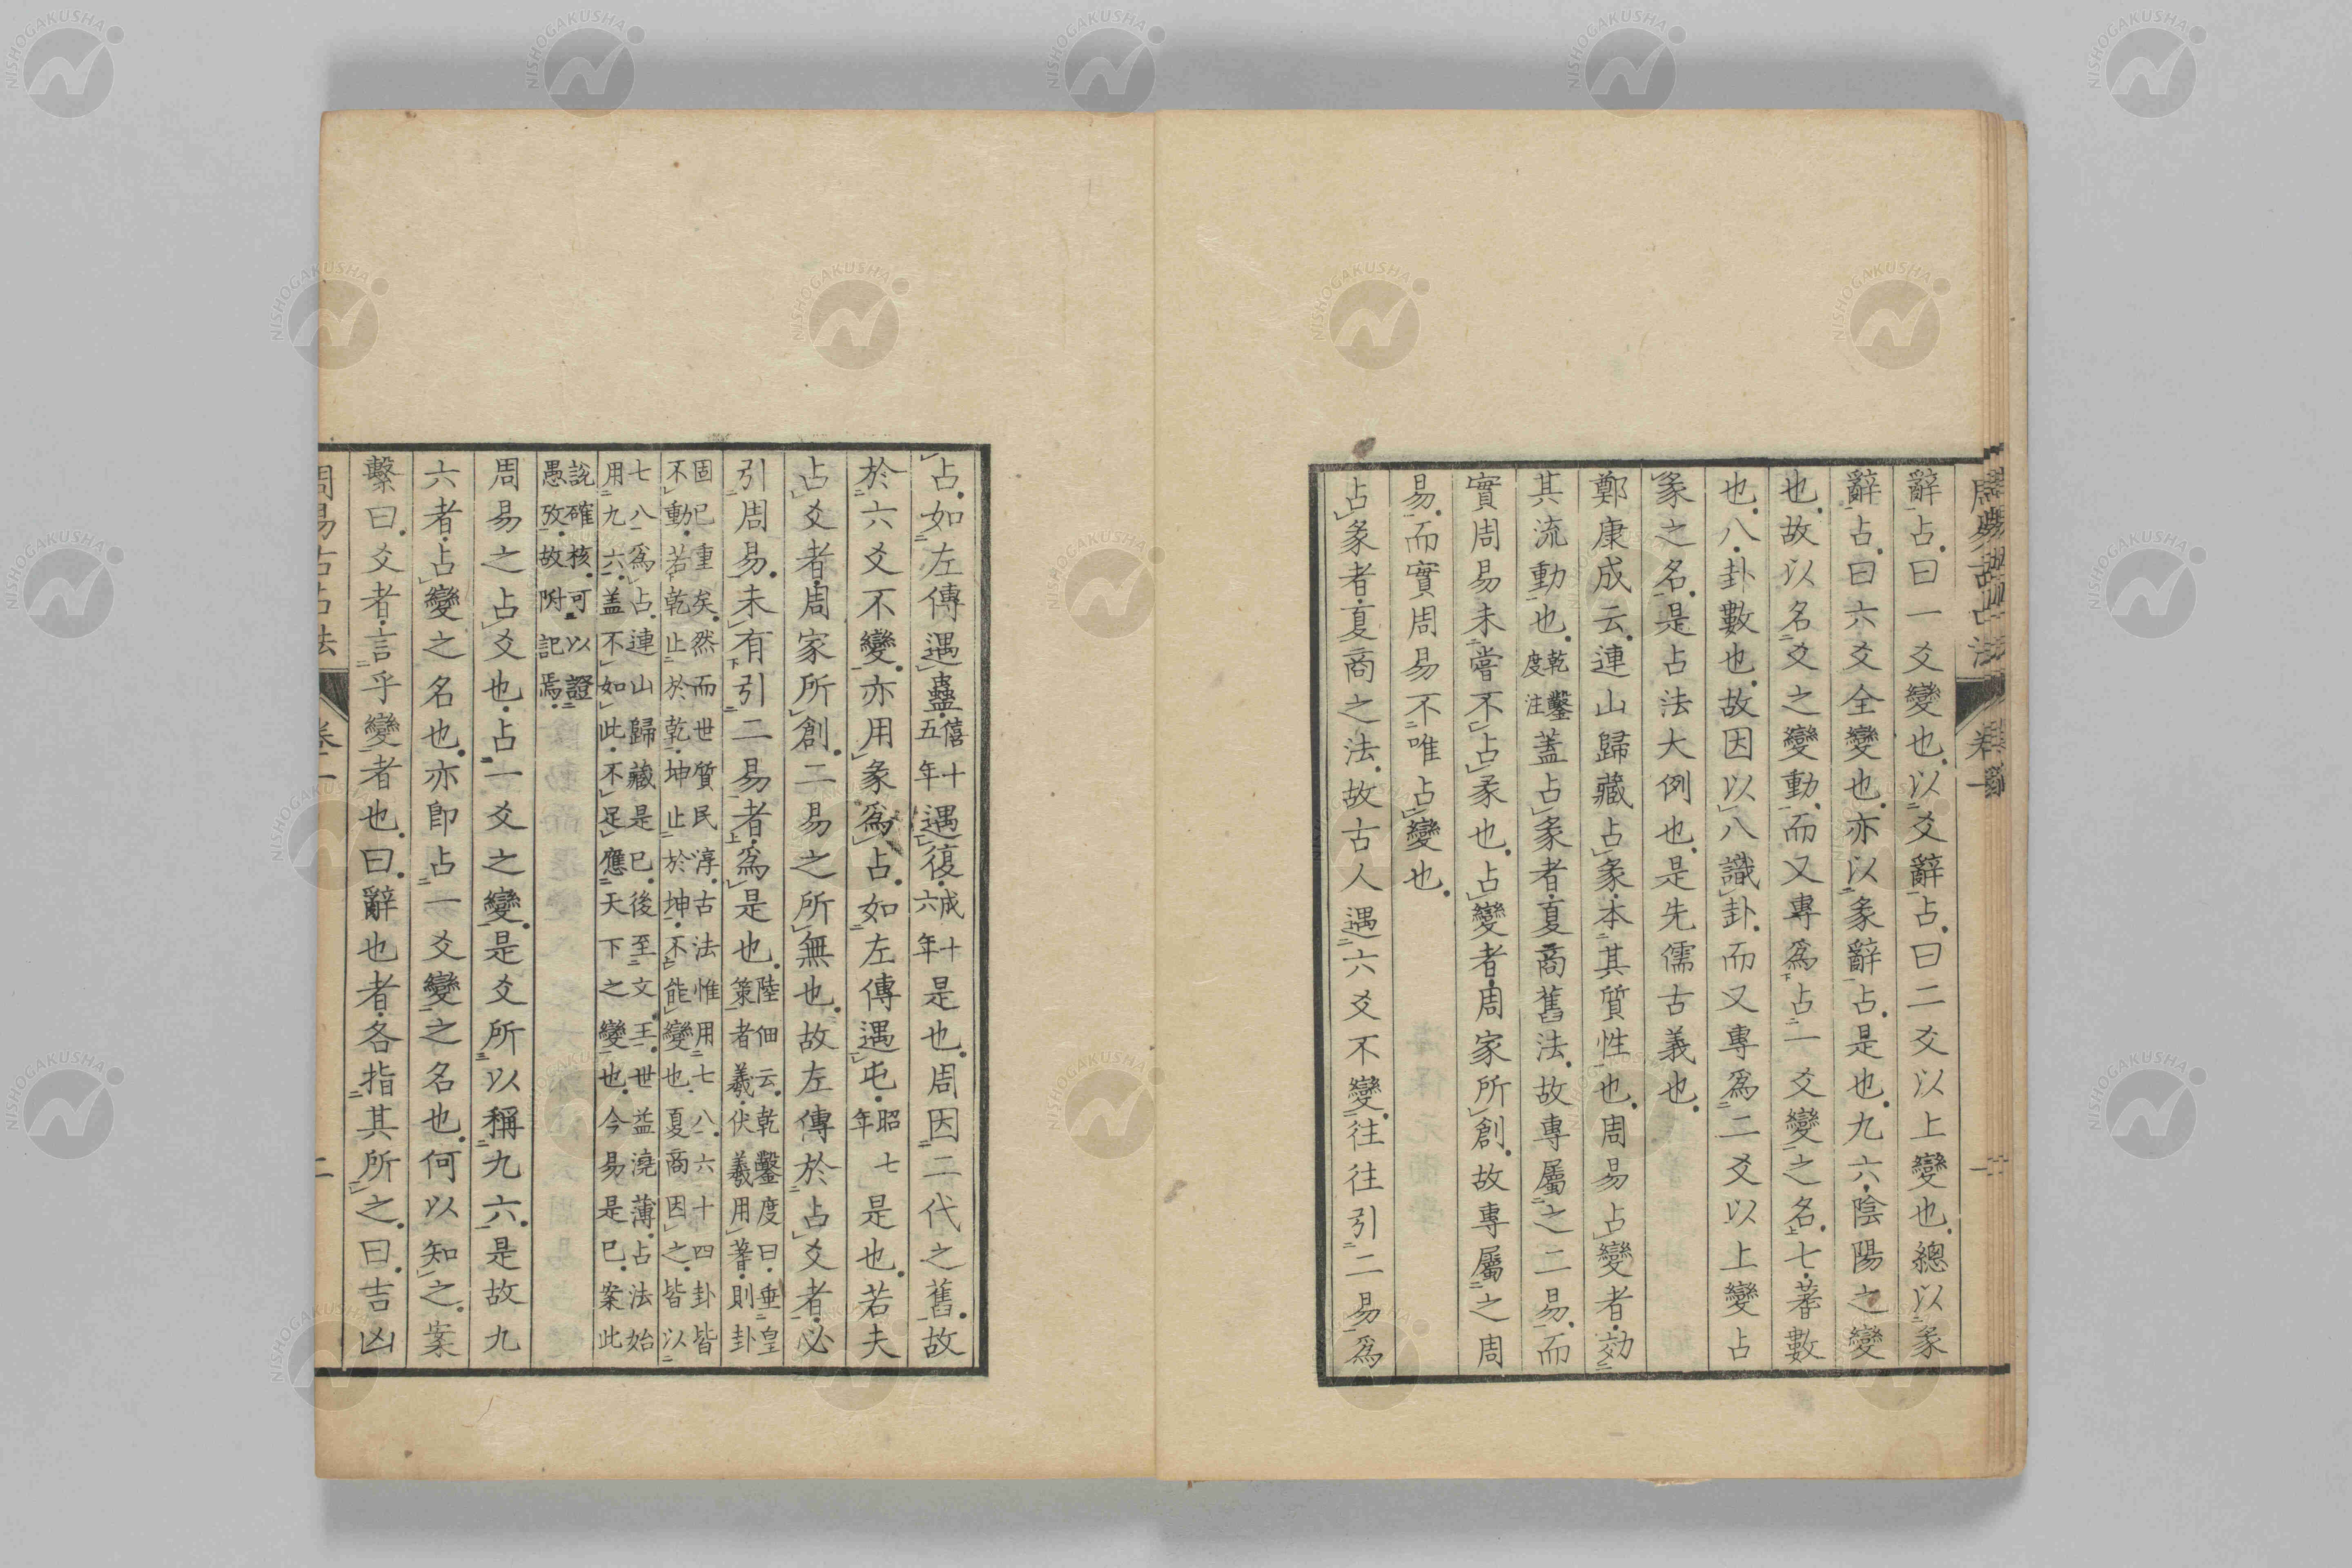 辭占曰一爻變也以爻辭占曰二爻以上變也總以彖
辭占曰六爻全變也亦以彖辭占是也九六陰陽之變
也故以名爻之變動而又專爲占一爻變之名七蓍數
也八卦數也故因以八識卦而又專爲二爻以上變占
彖之名是占法大例也是先儒古義也
鄭康成云連山歸藏占彖本其質性也周易占變者効
其流動也乾鑿度注蓋占彖者夏商舊法故專屬之二易而
實周易未嘗不占彖也占變者周家所創故專屬之周
易而實周易不唯占變也
占彖者夏商之法故古人遇六爻不變往往引二易爲
占如左傳遇蠱僖十五年遇復成十六年是也周因二代之舊故
於六爻不變亦用彖爲占如左傳遇屯昭七年是也若夫
占爻者周家所創二易之所無也故左傳於占爻者必
引周易未有引二易者爲是也陸佃云乾鑿度曰垂皇
策者羲伏羲用蓍則卦
固已重矣然而世質民淳古法惟用七八六十四卦皆
不動若乾止於乾坤止於坤不能變也夏商因之皆以
七八爲占連山歸藏是已後至文王世益澆薄占法始
用九六盖不如此不足應天下之變也今易是已案此
說確核可以證
愚攷故附記焉
周易之占爻也占一爻之變是爻所以稱九六是故九
六者占變之名也亦卽占一爻變之名也何以知之案
繫曰爻者言乎變者也曰辭也者各指其所之曰吉凶
周易古占法 卷二 二